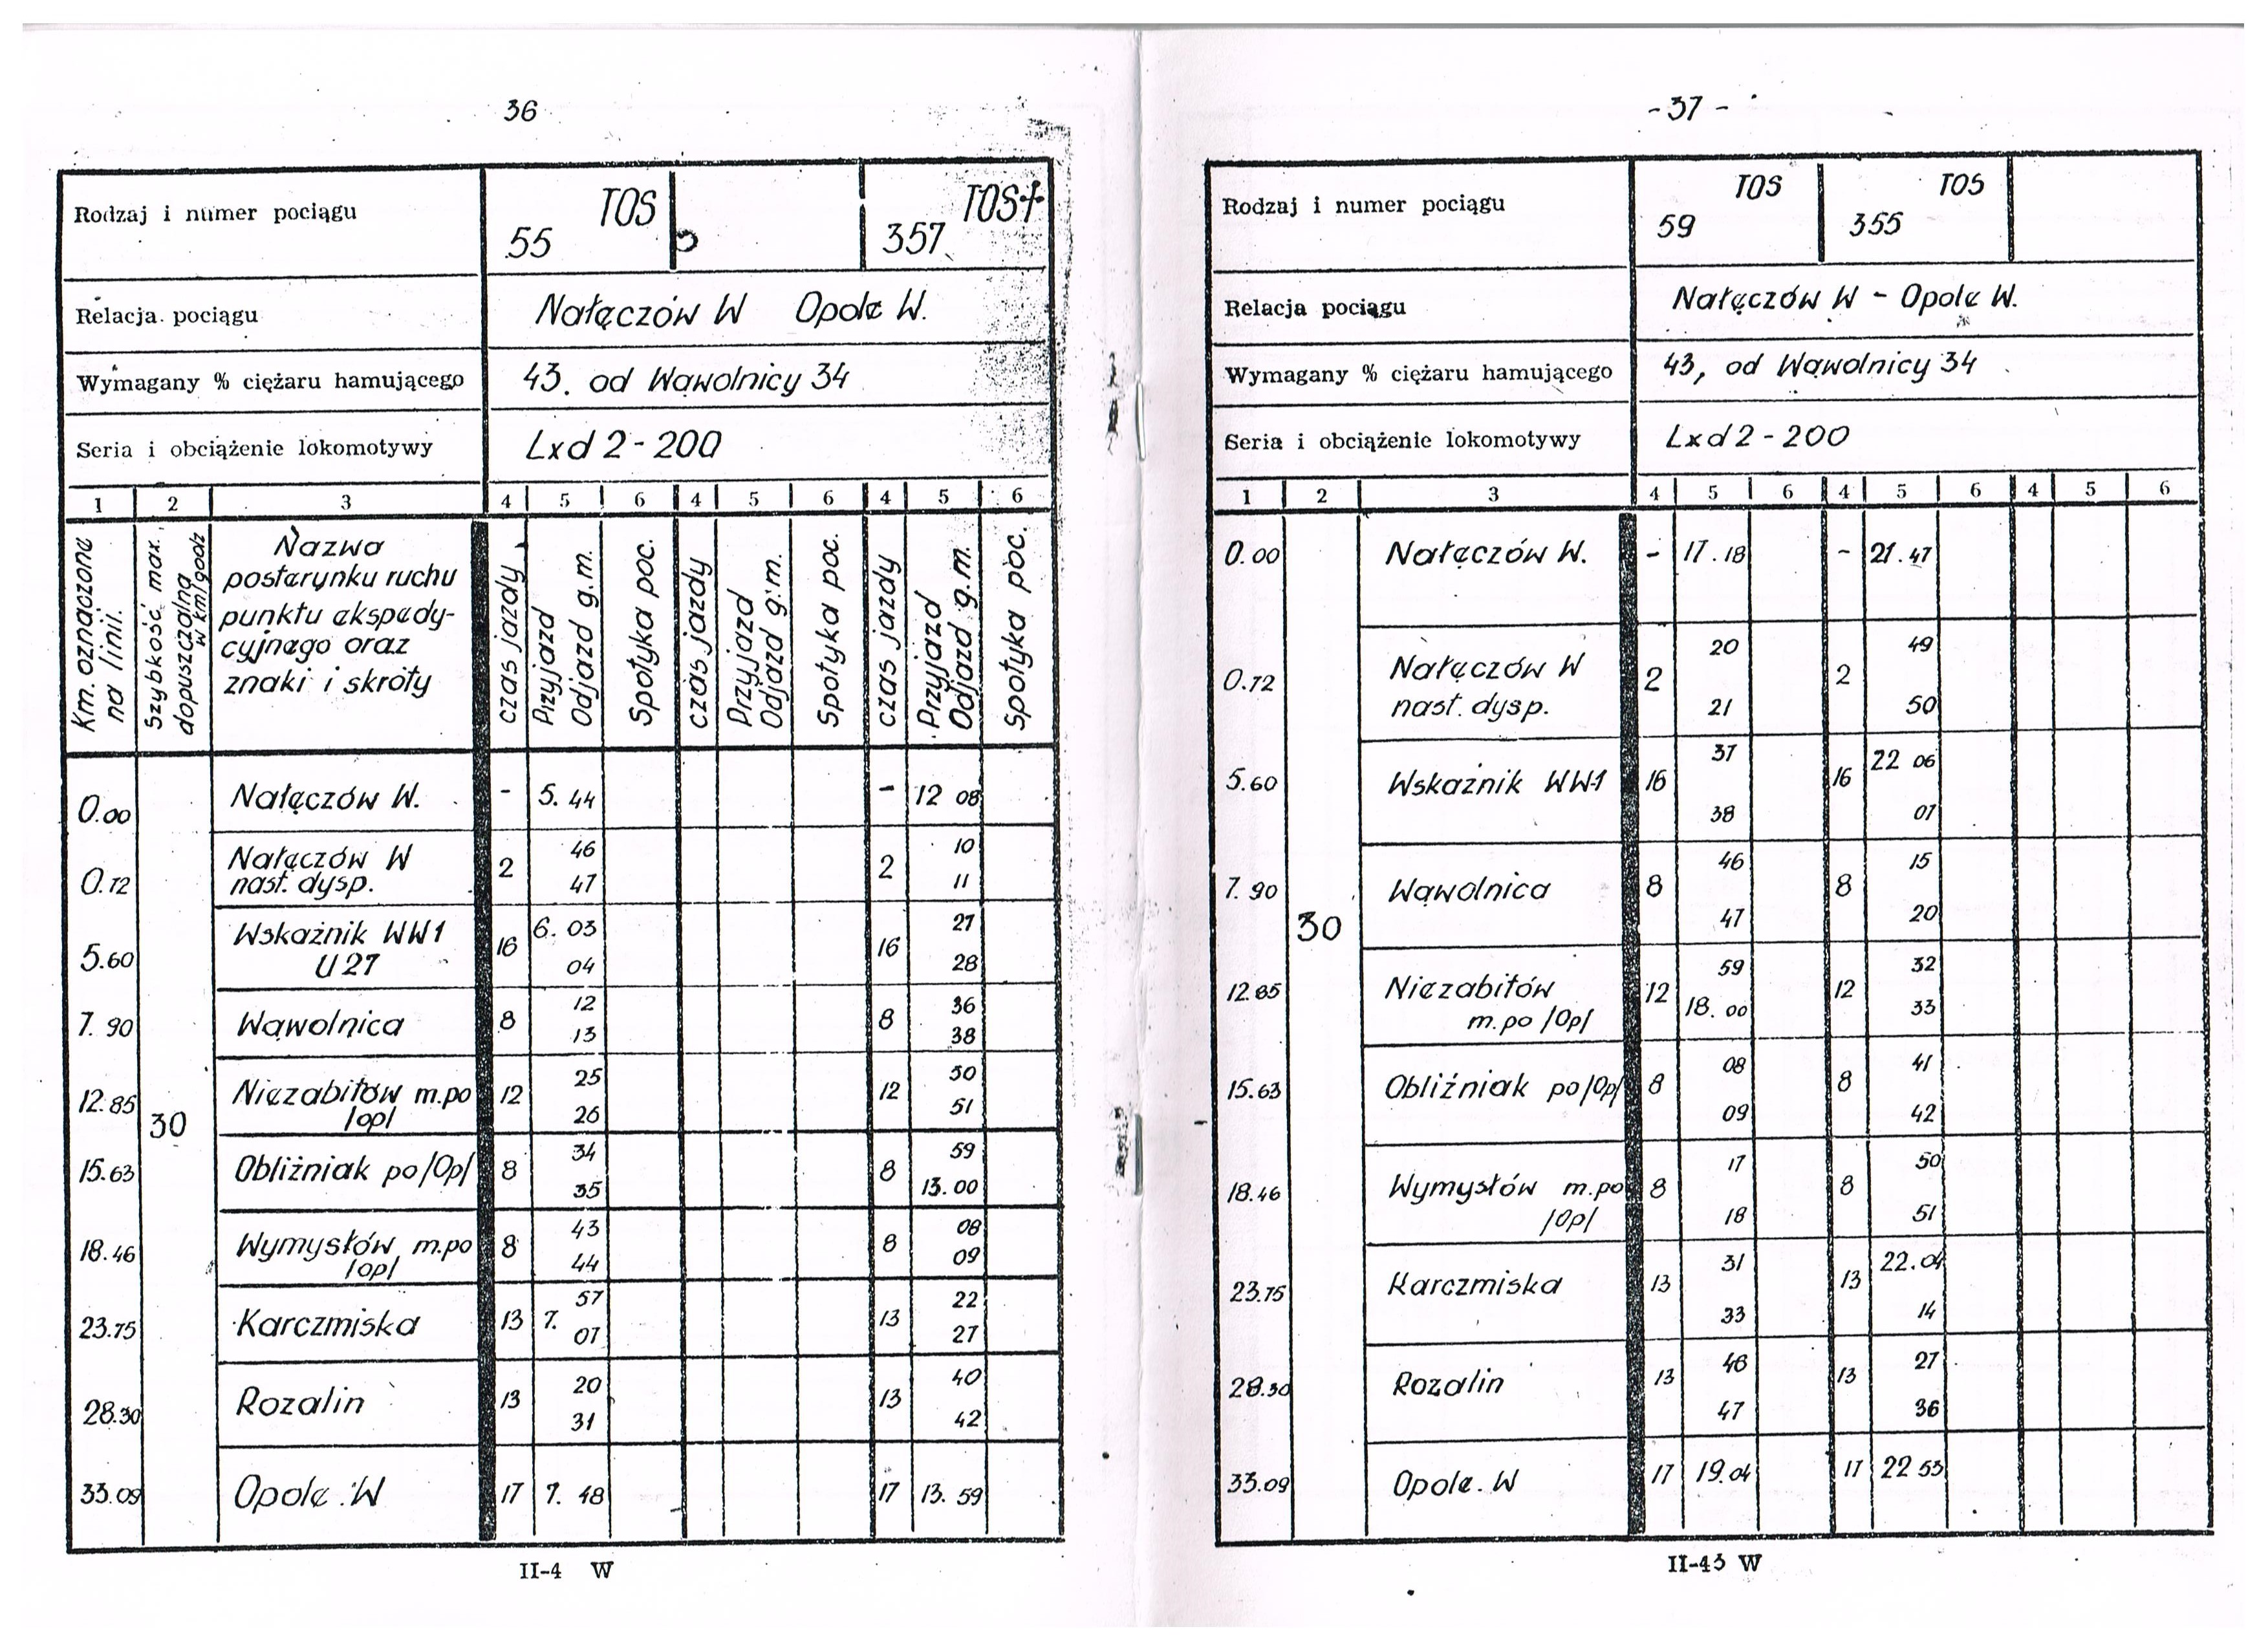 36
Rodzaj i numer pociągu
TOS
55
TOS+
357
Relacja pociągu
Nałęczów W Opole W.
Wymagany % ciężaru hamującego
43. od Wąwolnicy 34
Seria i obciążenie lokomotywy
Lxd 2 - 200
1 2 3 4 5 6 4 5 6 4 5 6
Km. oznaczone na linii.
Szybkość max. dopuszczalna w km/godz
Nazwa
posterunku ruchu
punktu ekspedy-
cyjnego oraz
znaki i skróty
czas jazdy
Przyjazd
Odjazd g.m.
Spotyka poc.
czas jazdy
Przyjazd
Odjazd g.m.
Spotyka poc.
czas jazdy
Przyjazd
Odjazd g.m.
Spotyka poc.
30
0.00 Nałęczów W. - 5.44 - 12 08
0.72 Nałęczów W 2 46 2 10
nast. dysp. 47 11
5.60 Wskaźnik WW1 16 6.03 16 27
U 27 04 28
7.90 Wąwolnica 8 12 8 36
13 38
12.85 Niezabitów m.po 12 25 12 50
/op/ 26 51
15.63 Obliźniak po/Op/ 8 34 8 59
35 13.00
18.46 Wymysłów m.po 8 43 8 08
/op/ 44 09
23.75 Karczmiska 13 57 13 22
7. 07 27
28.30 Rozalin 13 20 13 40
31 42
33.09 Opole.W 17 7.48 17 13.59
II-4 W
- 37 -
Rodzaj i numer pociągu
TOS
59
TOS
355
Relacja pociągu
Nałęczów W - Opole W.
Wymagany % ciężaru hamującego
43, od Wąwolnicy 34
Seria i obciążenie lokomotywy
Lxd 2 - 200
1 2 3 4 5 6 4 5 6 4 5 6
30
0.00 Nałęczów W. - 17.18 - 21.47
0.72 Nałęczów W 2 20 2 49
nast. dysp. 21 50
5.60 Wskaźnik WW1 16 37 16 22 06
38 07
7.90 Wąwolnica 8 46 8 15
47 20
12.85 Niezabitów 12 59 12 32
m.po /Op/ 18.00 33
15.63 Obliźniak po/Op/ 8 08 8 41
09 42
18.46 Wymysłów m.po 8 17 8 50
/Op/ 18 51
23.75 Karczmiska 13 31 13 22.04
33 14
28.30 Rozalin 13 46 13 27
47 36
33.09 Opole.W 17 19.04 17 22 53
II-43 W